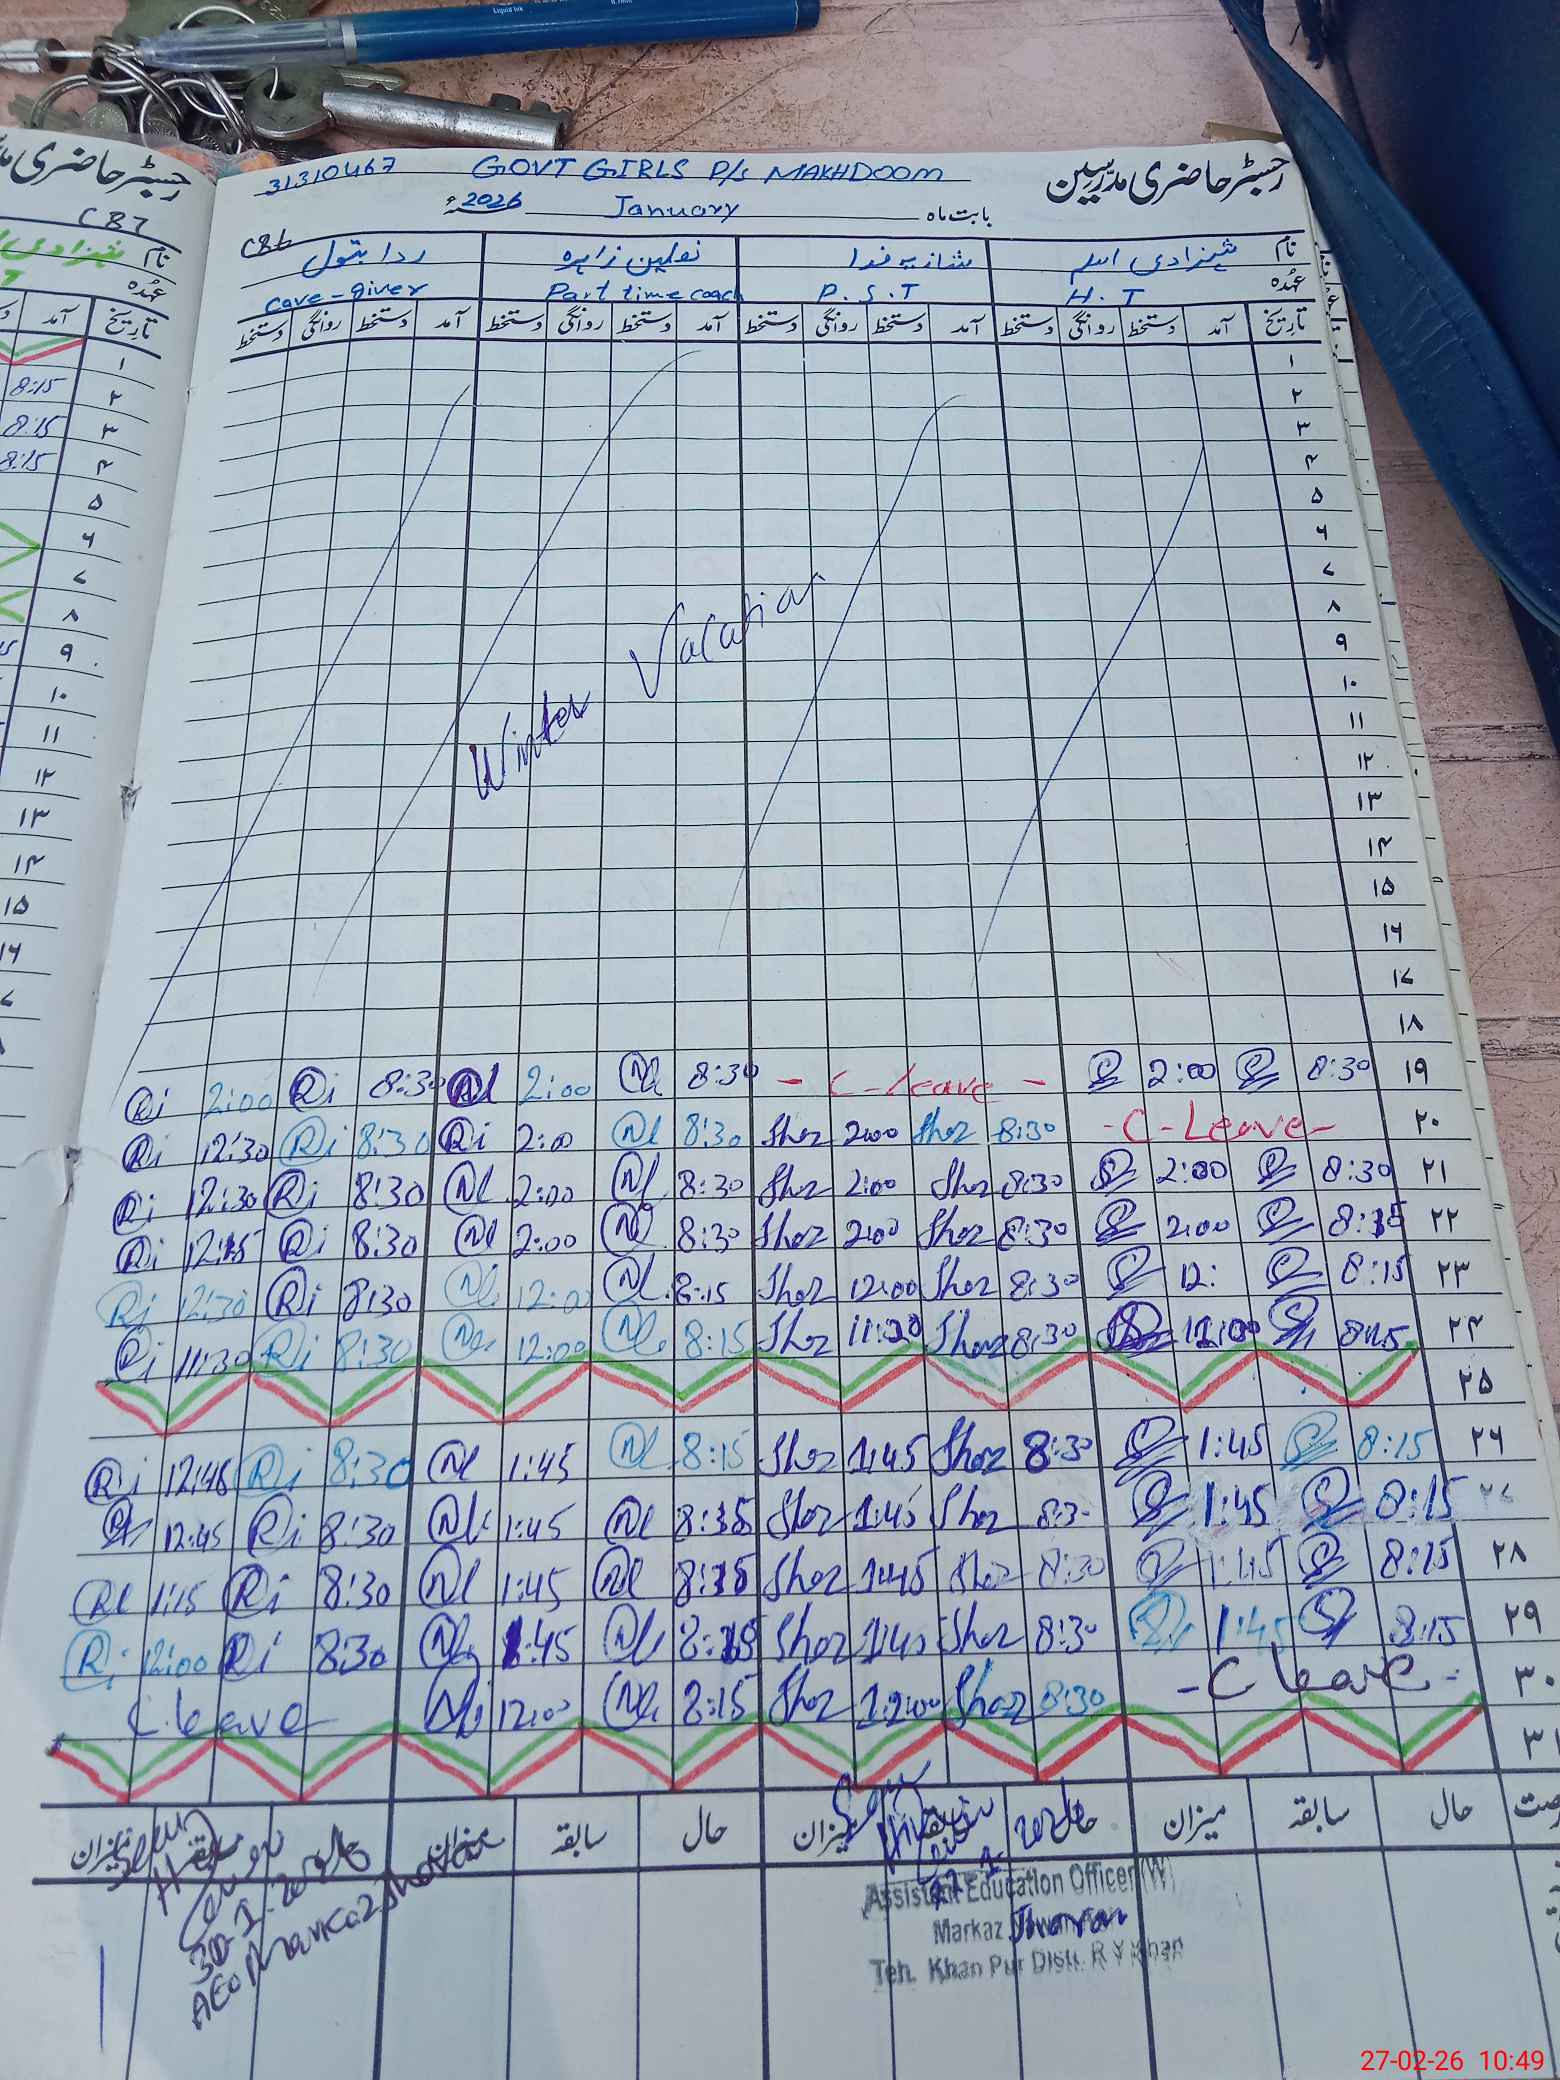 Liquid Ink 0.7mm
رجسٹر حاضری مدرسین
31310467 GOVT GIRLS P/S MAKHDOOM
بابت ماہ January 2026ء
CB7
نام شہزادی اسلم شازیہ فدا نعلین زاہرہ ردا بتول
عہدہ H.T P.S.T Part time coach Cave-giver
تاریخ آمد دستخط روانگی دستخط آمد دستخط روانگی دستخط آمد دستخط روانگی دستخط آمد دستخط روانگی دستخط
۱
۲
۳
۴
۵
۶
۷
۸
۹
۱۰
۱۱
۱۲
۱۳
۱۴
۱۵
۱۶
۱۷
۱۸
Winter Vacation
Ri 2:00 Ri 8:30 Nl 2:00 Nl 8:30 - C-leave - 2:00 8:30 ۱۹
Ri 12:30 Ri 8:30 Ri 2:00 Nl 8:30 Shaz 2:00 Shaz 8:30 -C-Leave- ۲۰
Ri 12:30 Ri 8:30 Nl 2:00 Nl 8:30 Shaz 2:00 Shaz 8:30 2:00 8:30 ۲۱
Ri 12:15 Ri 8:30 Nl 2:00 Nl 8:30 Shaz 2:00 Shaz 8:30 2:00 8:15 ۲۲
Ri 12:30 Ri 8:30 Nl 12:00 Nl 8:15 Shaz 12:00 Shaz 8:30 12: 8:15 ۲۳
Ri 11:30 Ri 8:30 Nl 12:00 Nl 8:15 Shaz 11:30 Shaz 8:30 8:15 ۲۴
۲۵
Ri 12:45 Ri 8:30 Nl 1:45 Nl 8:15 Shaz 1:45 Shaz 8:30 1:45 8:15 ۲۶
12:45 Ri 8:30 Nl 1:45 Nl 8:15 Shaz 1:45 Shaz 8:3- 1:45 8:15 ۲۷
Ri 1:15 Ri 8:30 Nl 1:45 Nl 8:15 Shaz 1:45 Shaz 8:30 1:45 8:15 ۲۸
Ri 12:00 Ri 8:30 Nl 1:45 Nl 8:15 Shaz 1:45 Shaz 8:30 1:45 8:15 ۲۹
C.leave Nl 12:00 Nl 8:15 Shaz 12:00 Shaz 8:30 -C leave- ۳۰
۳۱
حال سابقہ میزان حال سابقہ میزان حال سابقہ میزان
30-1-2026
AEO Markaz Jhoran
Assistant Education Officer (W)
Markaz Jhoran
Teh. Khan Pur Distt. R Y Khan
27-02-26 10:49